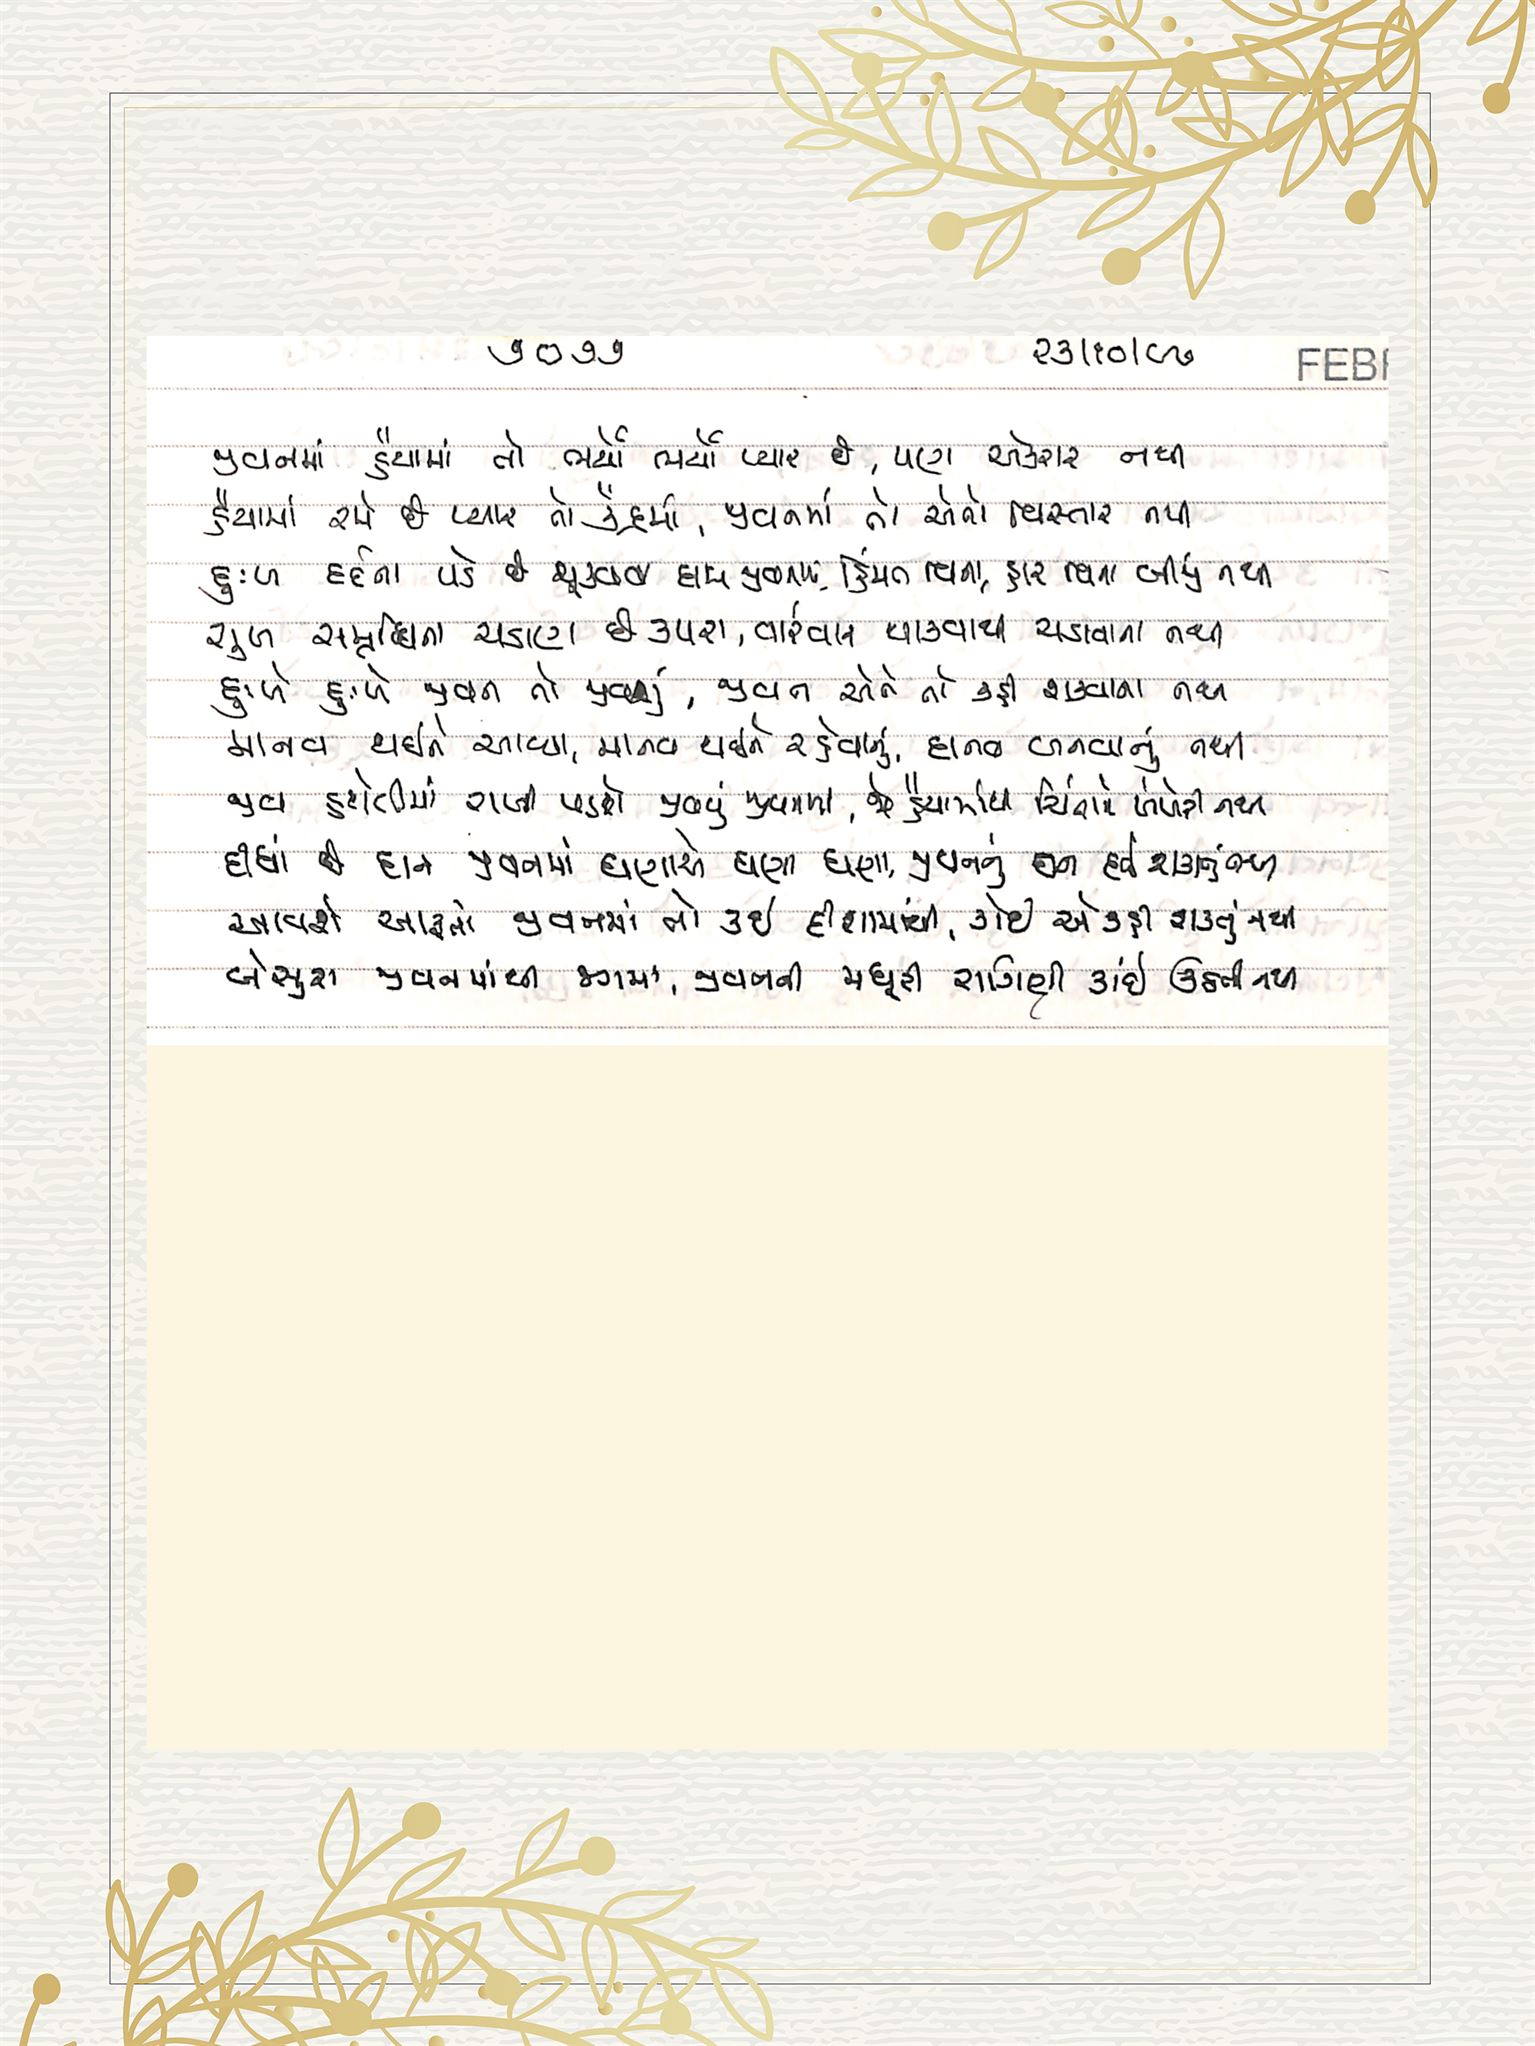 ૭૦૭૭ ૨૩/૧૦/૯૭ FEBR
જીવનમાં હૈયામાં તો ભર્યો ભર્યો પ્યાર છે, પણ એકરાર નથી
હૈયામાં રમે છે પ્યાર તો કેંદ્રમાં, જીવનમાં તો એનો વિસ્તાર નથી
દુઃખ દર્દના પડે છે ચૂકવવા દામ જીવનમાં, કિંમત વિના, હાર વિના બીજું નથી
સુખ સમૃદ્ધિના ચડાણ છે ઉપરા, વારંવાર થાકવાથી ચડાવાના નથી
દુઃખે દુઃખે જીવન તો જીવાયું, જીવન એને તો કહી શકવાના નથી
માનવ થઈને આવ્યા, માનવ થઈને રહેવાનું, દાનવ બનવાનું નથી
જીવ હશેતીમાં રાજી પડશે જીવવું જીવનમાં, જે હૈયામાંથી ચિંતાને ખંખેરી નથી
દીધાં છે દાન જીવનમાં ઘણાએ ઘણા ઘણા, જીવનનું દાન દઈ શકાતું નથી
આવશે આફતો જીવનમાં તો કઈ દીશામાંથી, કોઈ એ કહી શકતું નથી
બેસુરા જીવનમાંથી જગમાં, જીવનની મધૂરી રાગિણી કાંઈ ઉઠતી નથી